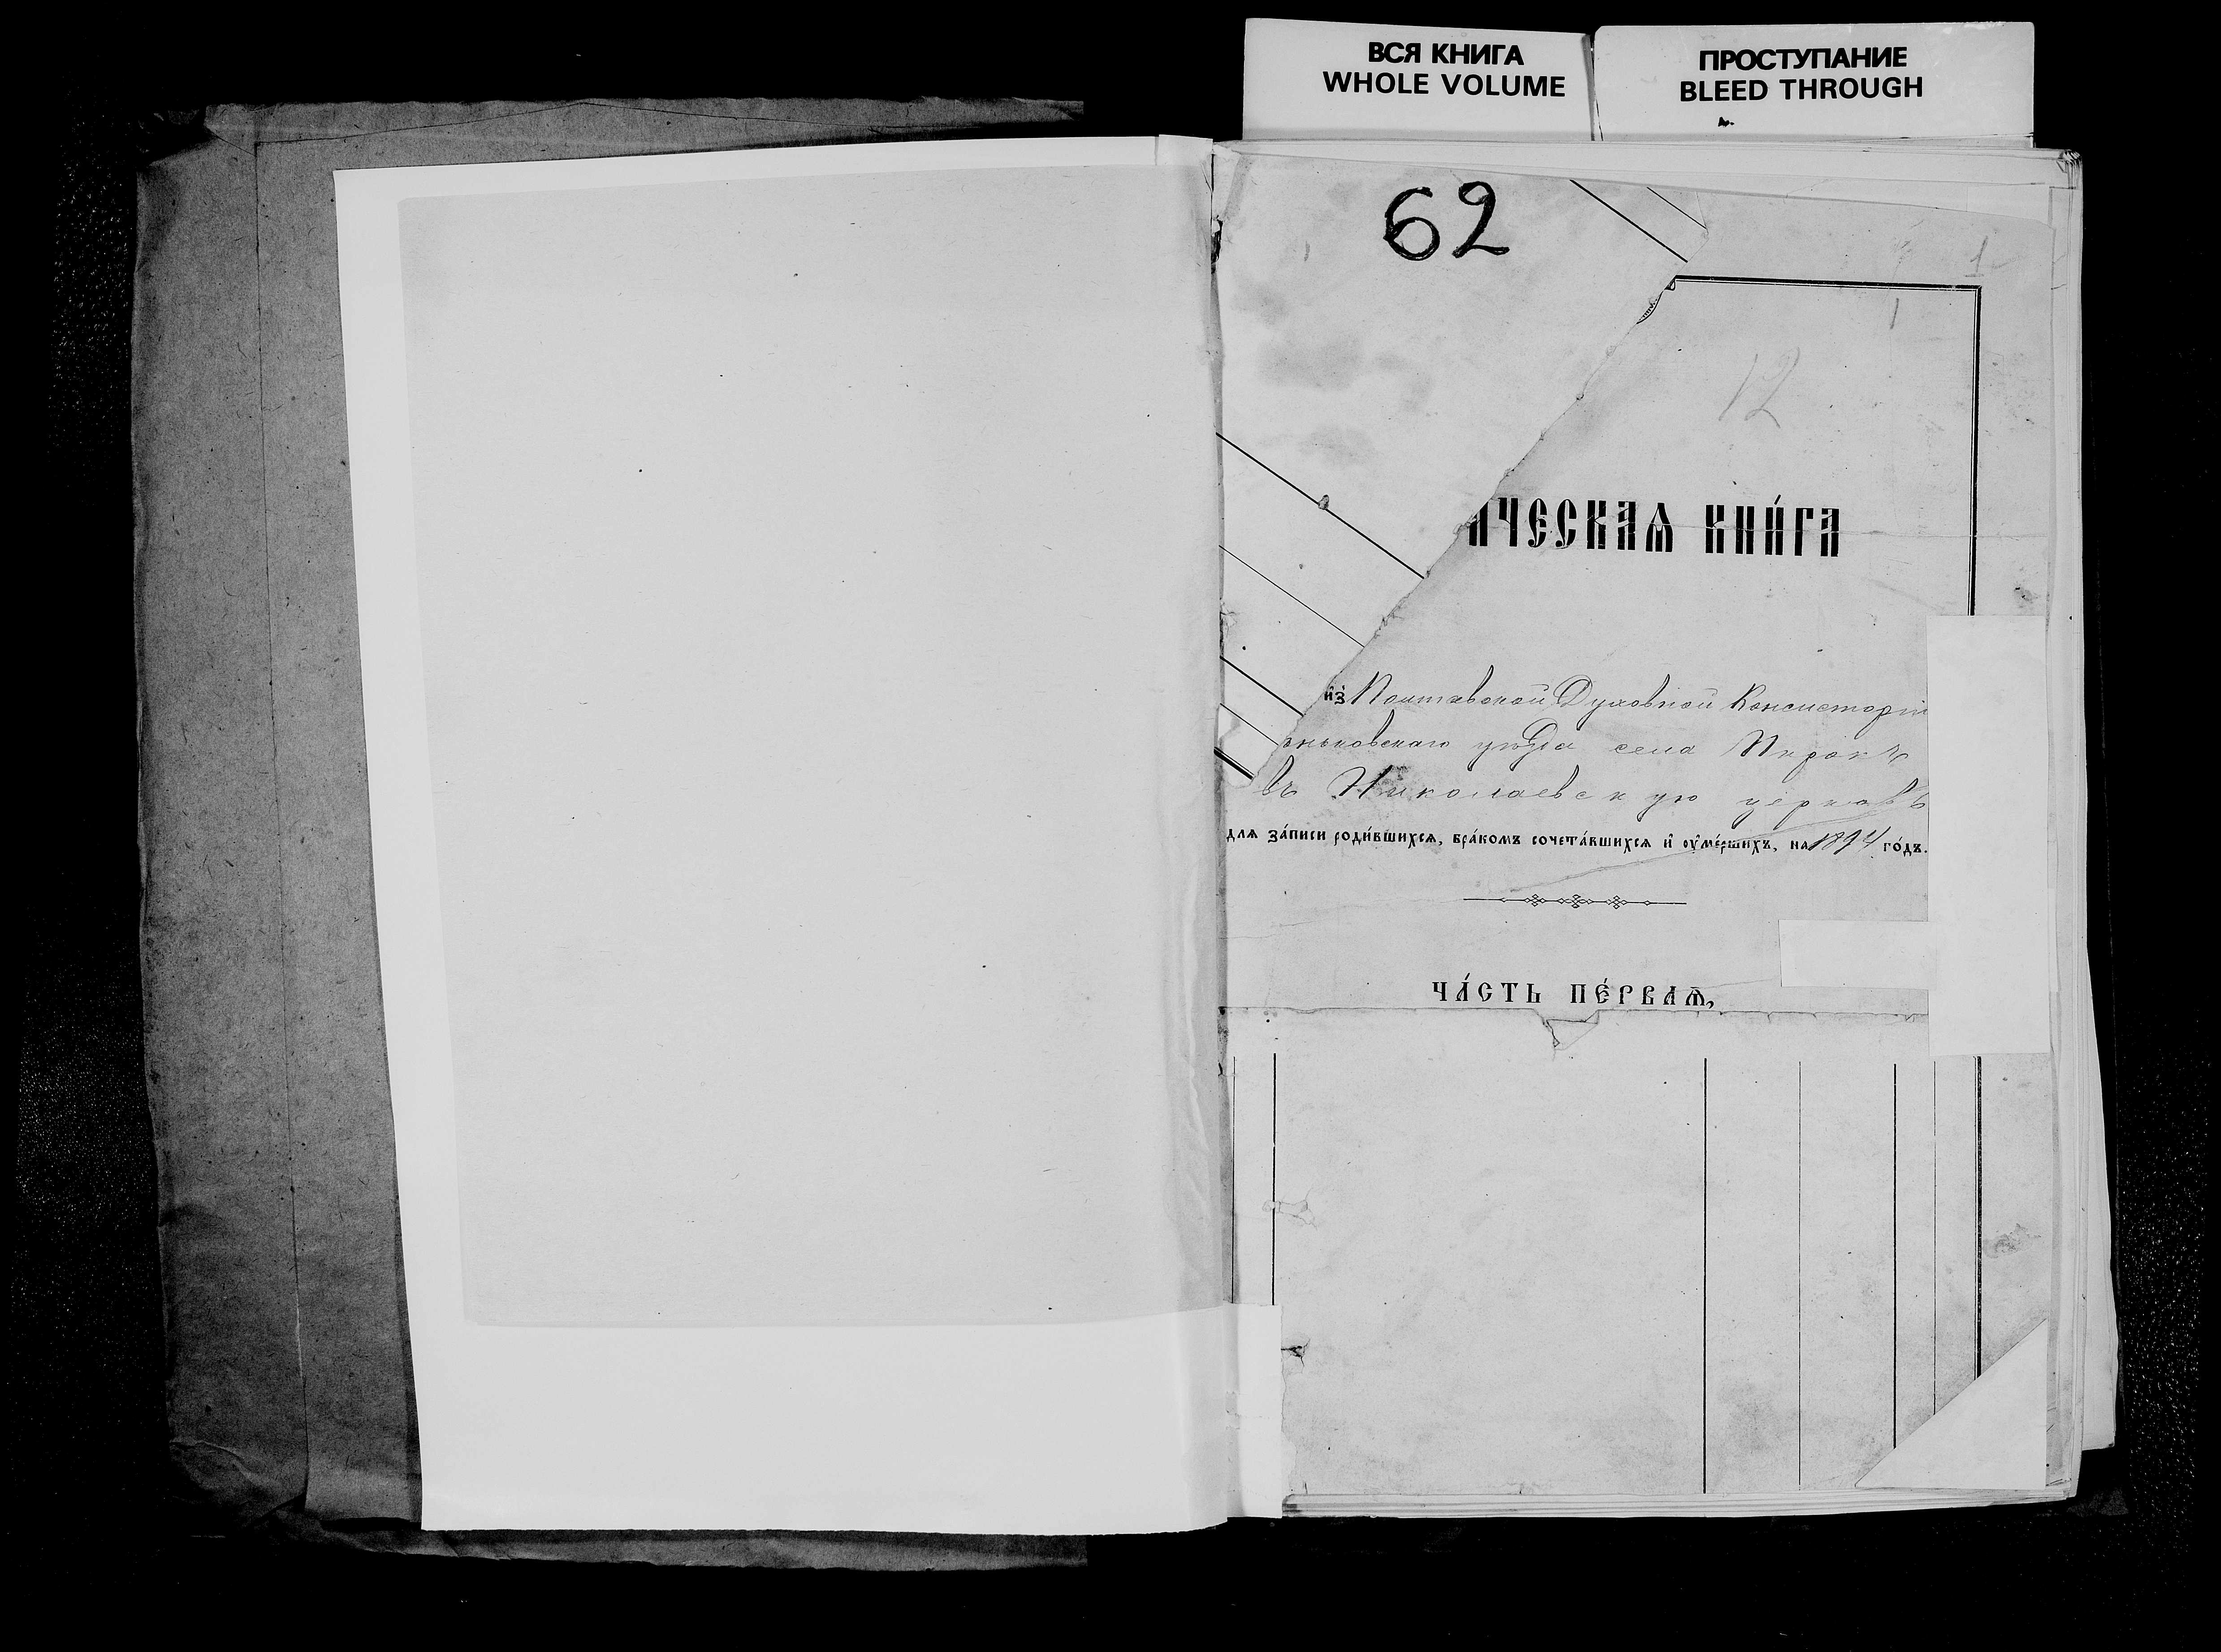 ВСЯ КНИГА
WHOLE VOLUME
ПРОСТУПАНИЕ
BLEED THROUGH
62
1
12
ическаѧ кни́га
и҆з̾ Полтавской Духовной Консисторіи
ньковскаго уѣзда села
въ Николаевскую церковь
длѧ за́писи роди́вшихсѧ, бра́комъ сочета́вшихсѧ и҆ ᲂу҆ме́ршихъ, на 1894 го́дъ.
ча́сть пе́рваѧ,